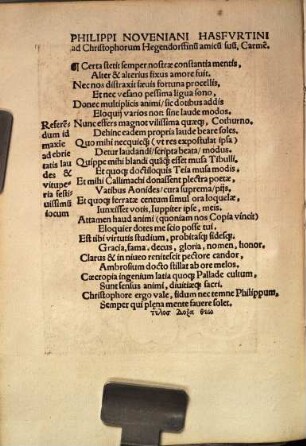 PHILIPPI NOVENIANI HASFVRTINI
ad Christophorum Hegendorffinũ amicũ suũ, Carmẽ.
¶ Certa stetit semper nostræ constantia mentis,
Alter & alterius fixus amore fuit.
Nec nos distraxit sæuis fortuna procellis,
Et nec vesano pessima ligua sono,
Donec multiplicis animi/ sic dotibus addis
Eloquij varios non sine laude modos.
Nunc effers magnot vilissima quæq; Cothurno,
Dehinc eadem propria laude beare soles.
Quo mihi necquicq̃ (vt res expostulat ipsa)
Detur laudandi/ scripta beata/ modus.
Quippe mihi blandi quãq̃ esset musa Tibulli,
Et quoq; doctiloquis Teia musa modis,
Et mihi Callimachi donassent plectra poetæ,
Vatibus Aonides/ cura suprema/ pijs,
Et quoq; ferratæ centum simul ora loquelæ,
Iunxisset votis, Iuppiter ipse, meis,
Attamen haud animi (quoniam nos Copia vincit)
Eloquier dotes me scio posse tui.
Est tibi virtutis studium, probitasq; fidesq;
Gracia, fama, decus, gloria, nomen, honor,
Clarus & in niueo renitescit pectore candor,
Ambrosium docto stillat ab ore melos.
Cæcropia ingenium latia quoq; Pallade cultum,
Sunt sensius animi, diuitiæq; sacri.
Christophore ergo vale, fidum nec temne Philippum,
Semper qui plena mente fauere solet.
τελος Δοξα θεω
Referẽ
dum id
maxĩe
ad ebrie
tatis lau
des &
vitupe
ria festi
uissimũ
iocum